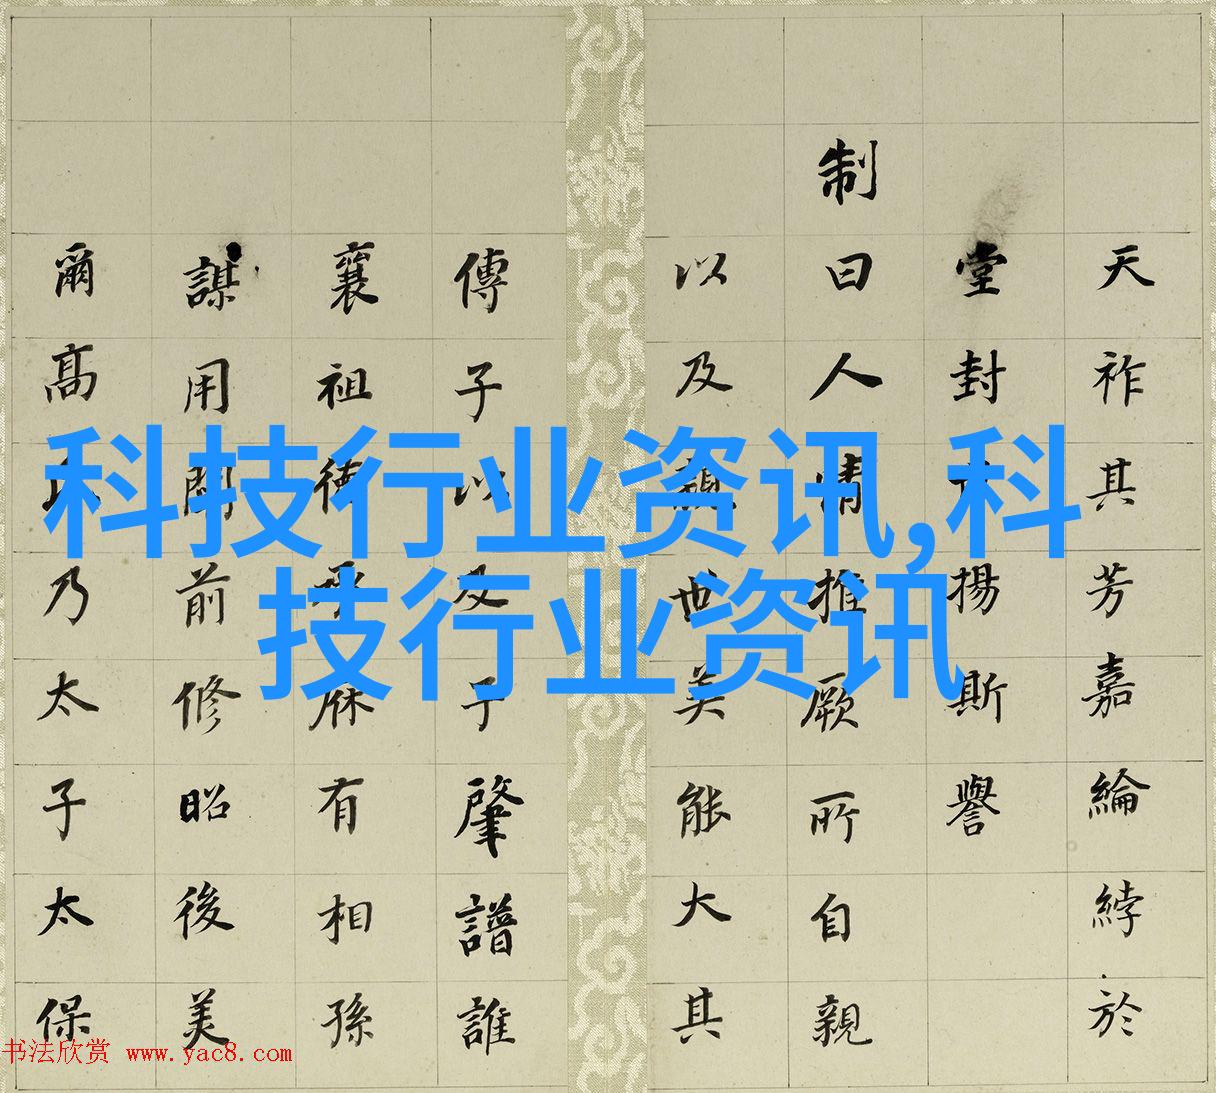 天祚其芳嘉綸綍於
堂封揚斯譽
制曰人情推厥所自親
以及世美能大其
傳子以及子肇譜誰
襄祖德庥有相孫
謀用前修昭後美
爾高乃太子太保
科技行业资讯,科
技行业资讯
书法欣赏 www.yac8.com